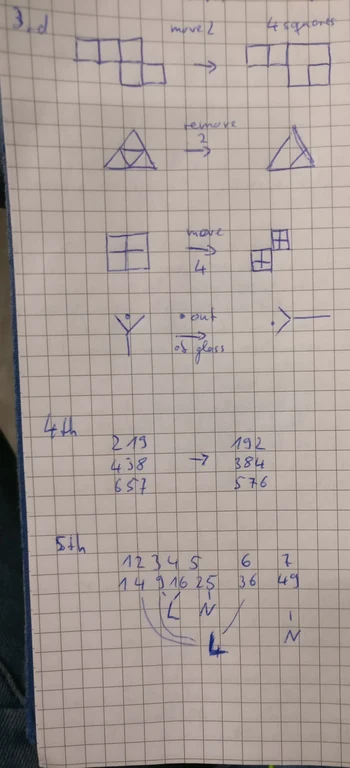 3.d
move 2
4 squares
remove
2
move
4
• out
of glass
4th
219 → 192
438 384
657 576
5th
1 2 3 4 5 6 7
1 4 9 16 25 36 49
L N
L N